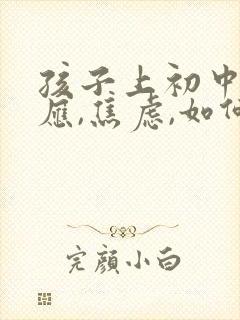 孩子上初中
应,焦虑,如何
完颜小白